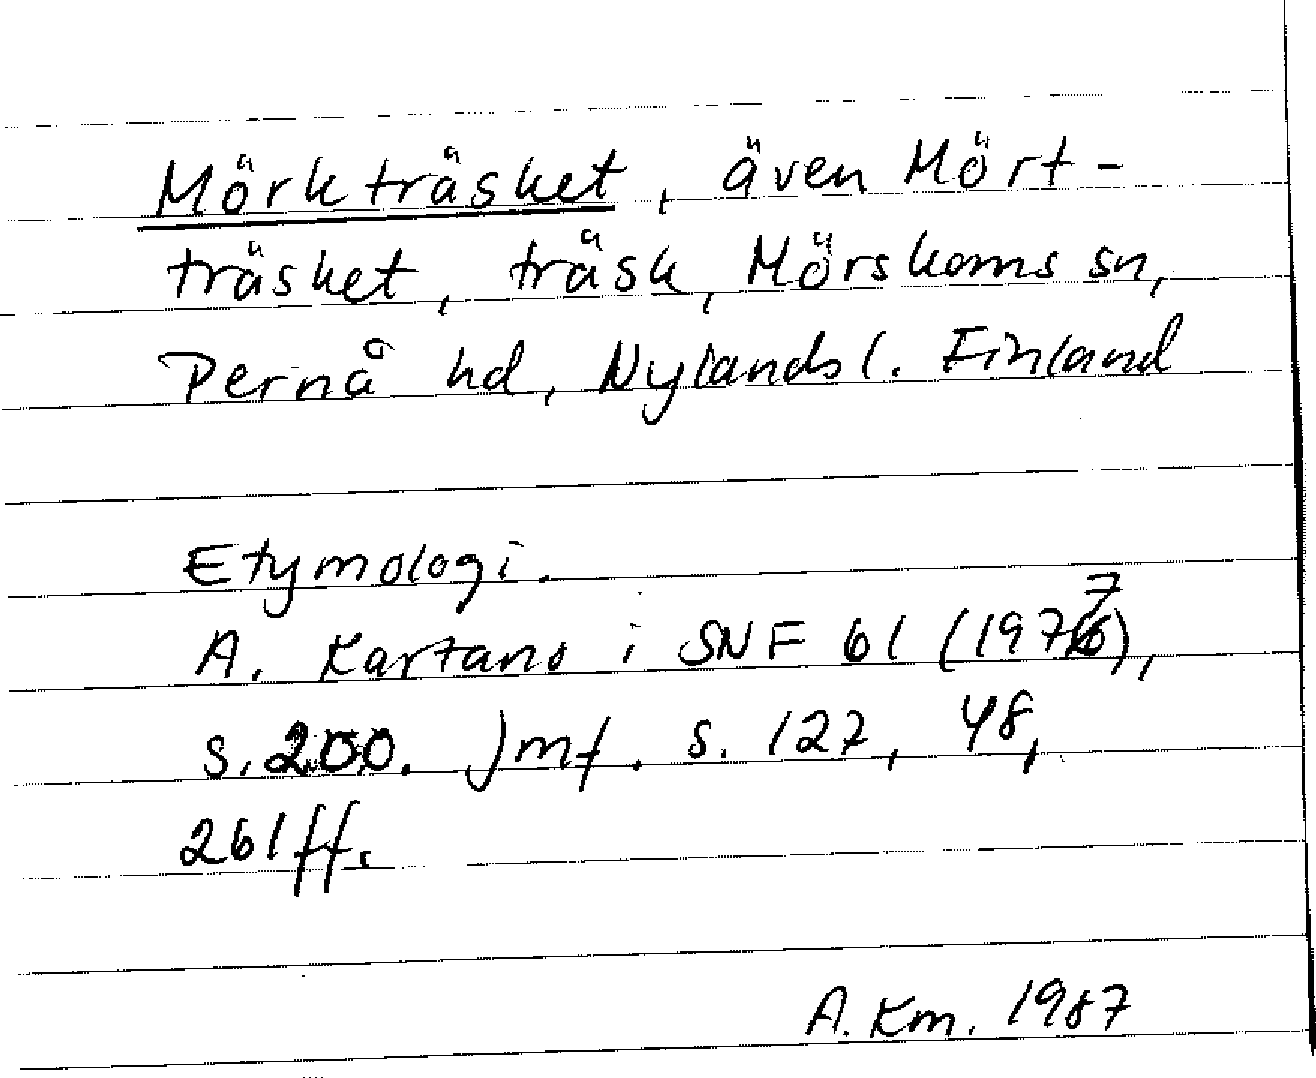 Mörkträsket, även Mört-
träsket, träsk, Mörskoms sn,
Pernå hd, Nylands l. Finland
Etymologi.
A. Kartano i SNF 61 (1977),
s. 200. Jmf. s. 127, 48,
261 ff.
A. Km. 1987